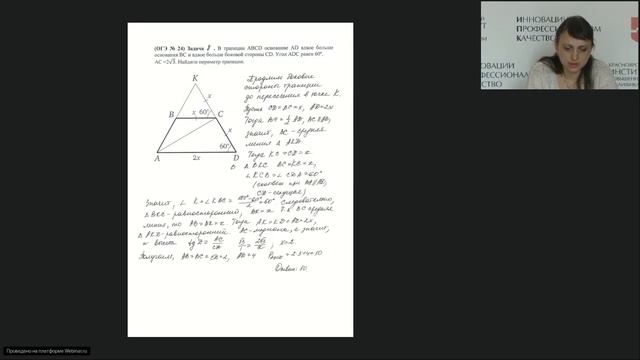 (ОГЭ № 24) Задача 7 . В трапеции ABCD основание AD вдвое больше
основания BC и вдвое больше боковой стороны CD. Угол ADC равен 60°,
AC =2√3. Найдите периметр трапеции.
K
x
B x 60° C
x
60°
A 2x D
Продлим боковые
стороны трапеции
до пересечения в точке K.
Пусть CD=BC=x, AD=2x
Тогда BC=½ AD, BC||AD,
значит, BC - средняя
линия Δ AKD.
Тогда KC=CD=x
В Δ BKC BC=KC=x,
∠KCB=∠CDA=60°
CD-секущая)
Значит, ∠K=∠KBC = =60° Следовательно,
ΔBKC-равносторонний, BK=x Т.к BC средняя
линия, то AB=BK=x Тогда AK=KD=AD=2x,
ΔAKD-равносторонний AC-медиана, а значит,
и высота tg D = AC/CD √3/1 = 2√3/x , x=2.
Получаем, AB=BC=CD=2, AD=4 P =2·3+4=10
Ответ: 10
ИННОВАЦИИ
ПРОФЕССИОНАЛИЗМ
КАЧЕСТВО
Проведено на платформе Webinar.ru